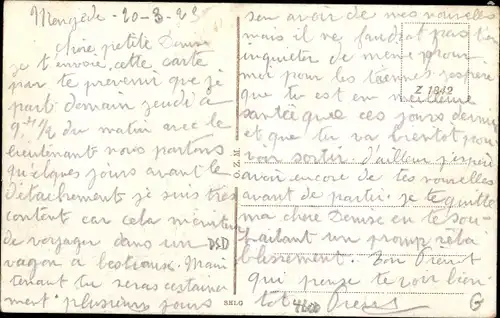 Mengède - 20-3-23
Chère petite Denise
je t'envoie cette carte
par te prevenir que je
part demain jeudi à
9 h 1/2 du matin avec le
lieutenant nous partons
quelques jours avant le
détachement je suis très
content car cela
de voyager dans un
vagon a bestiaux. Main
tenant tu seras certaine
ment plusieurs jours
sen avoir de mes nouvelles
mais il ne faudrait pas t'en
inquieter de meme pour
moi pour les tiennes j'espere
que tu est en meilleure
santée que ces jours dernier
et que tu va bientot pou
voir sortir d'ailleur j'espère
avoir encore de tes nouvelles
avant de partir. Je te quitte
ma chere Denise en te sou
haitant un promp réta
blissement. Ton Pierrot
qui pense te voir bien
tot Pierrot
Z 1342
O. Z. M.
DSD
BKLG
4600